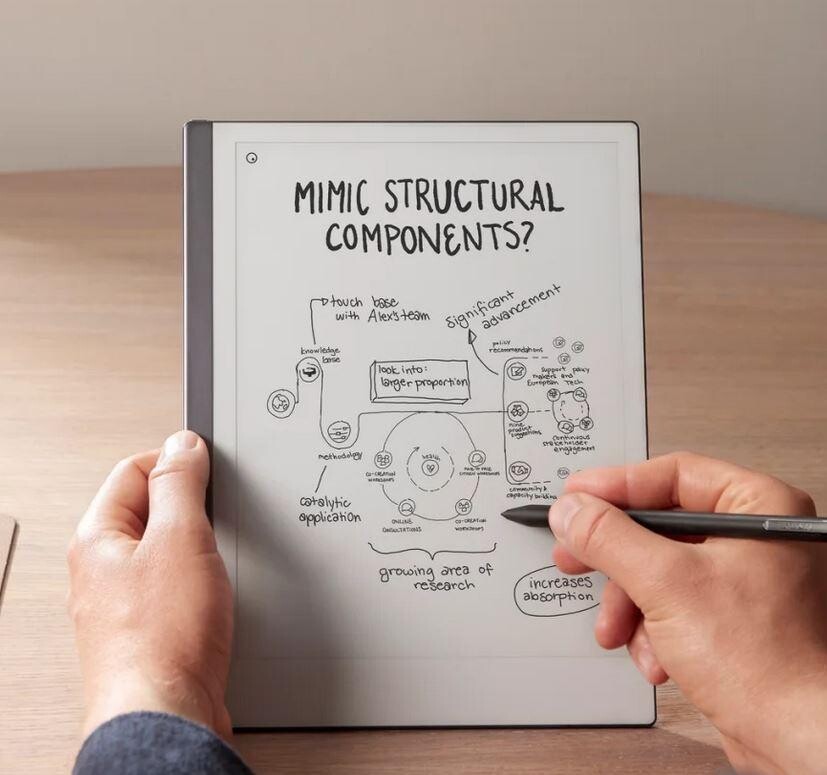 MIMIC STRUCTURAL
COMPONENTS?
touch base
with Alex's team
significant
advancement
knowledge
base
look into:
larger proportion
policy
recommendations
support policy
makers and
European Tech
nine
product
suggestions
continuous
stakeholder
engagement
methodology
health
CO-CREATION
WORKSHOPS
FACE-TO-FACE
CITIZEN WORKSHOPS
community &
capacity building
catalytic
application
ONLINE
CONSULTATIONS
CO-CREATION
WORKSHOPS
growing area of
research
increases
absorption